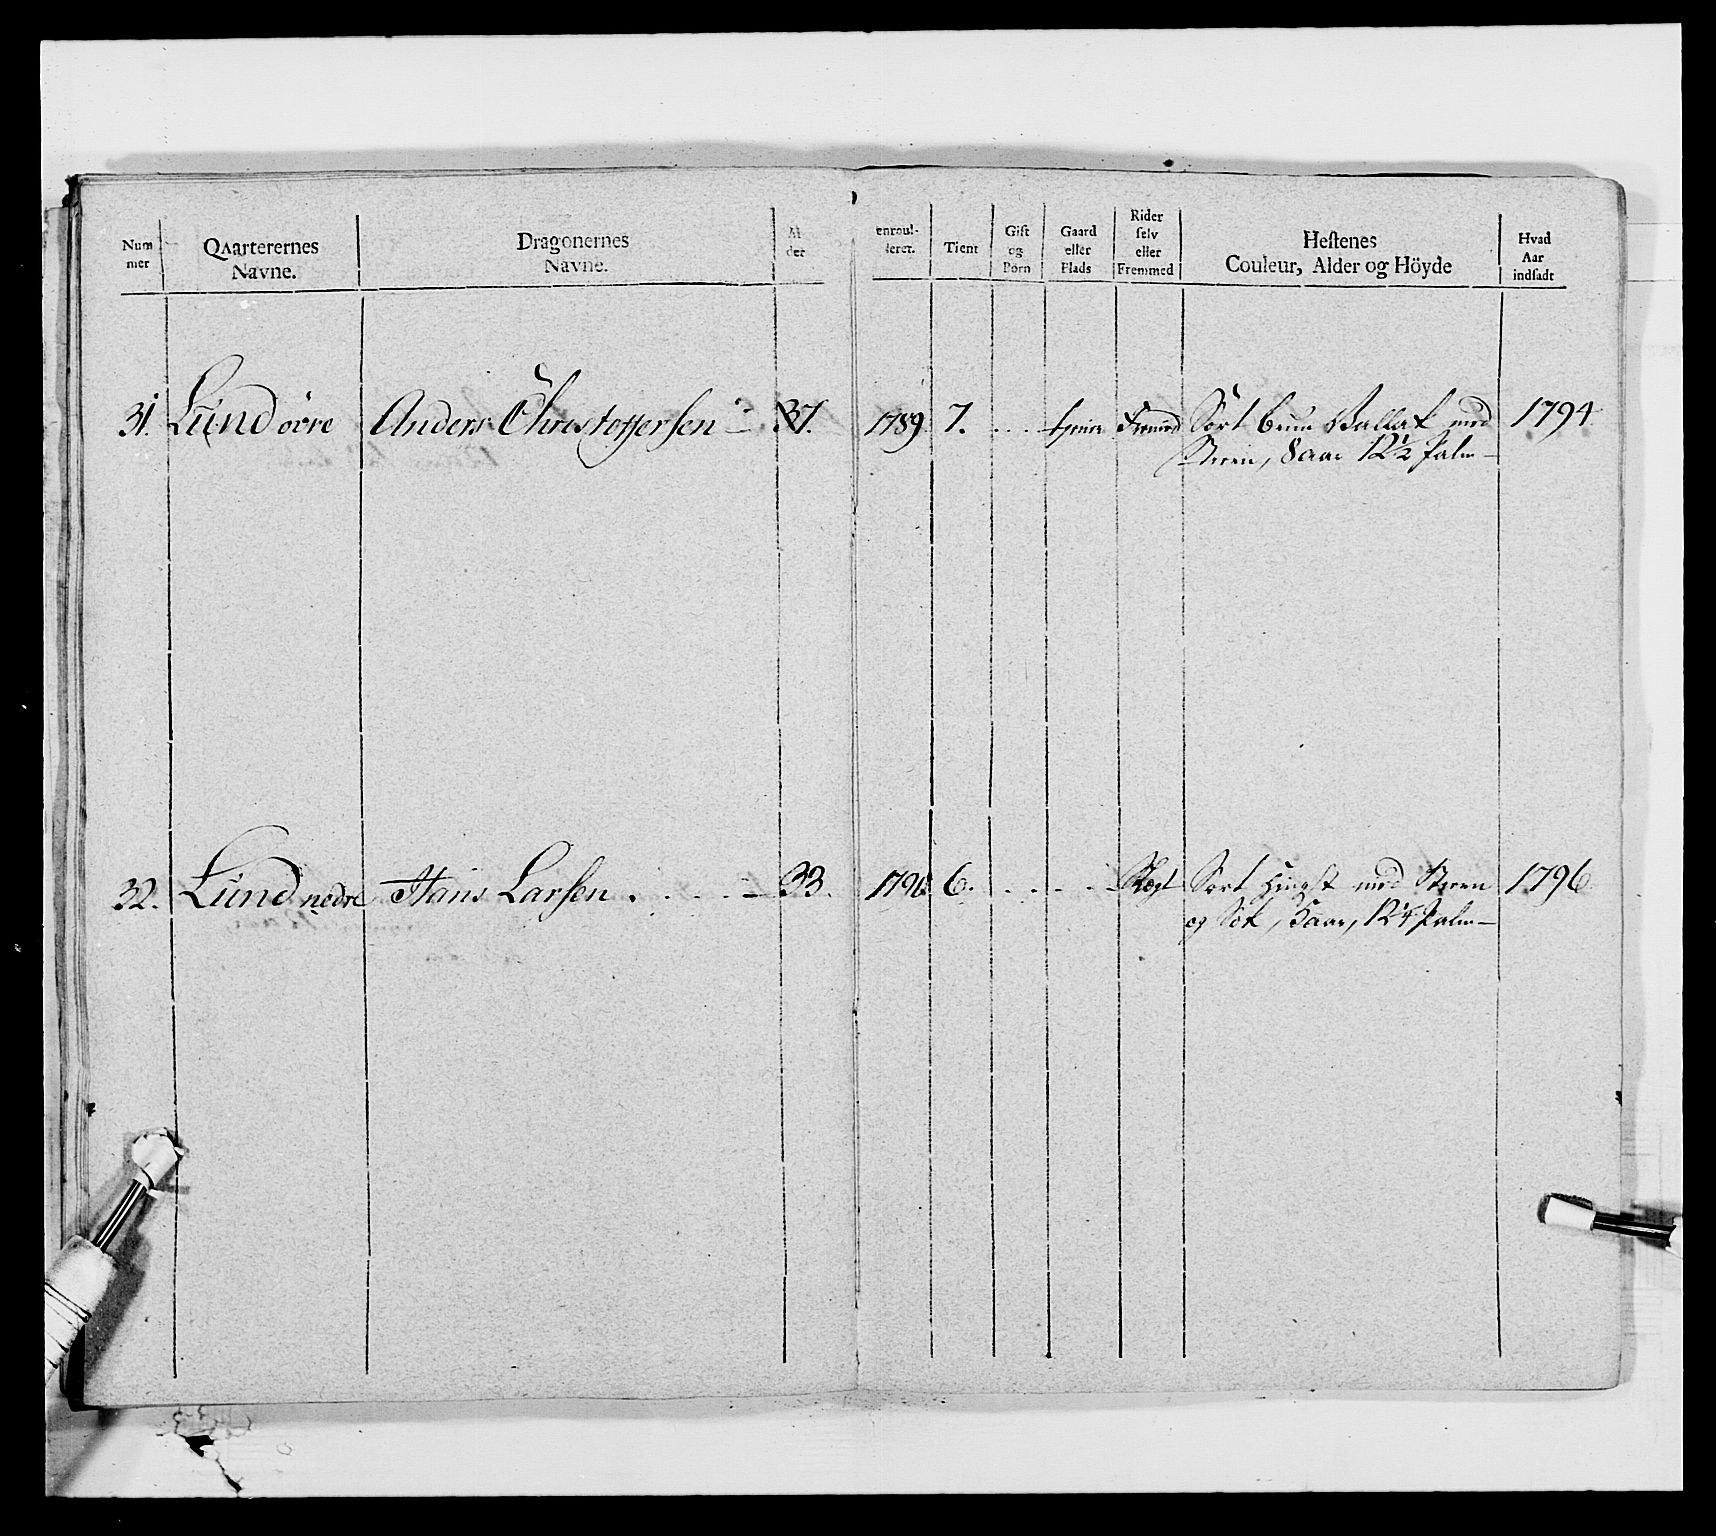 Num
mer
Qvarterernes
Navne.
Dragonernes
Navne.
Al
der
enroul-
leret.
Tient
Gift
og
Børn
Gaard
eller
Plads
Rider
selv
eller
Fremmed
Hestenes
Couleur, Alder og Höyde
Hvad
Aar
indsadt
31. Lund övre Anders Christoffersen 37. 1789 7. Sort brun Vallak med 1794
Stiern, 8 aar 12½ Palm
32. Lund nedre Hans Larsen 33. 1790 6. Sort Hingst med Stiern 1796
og 5 aar, 12¼ Palm